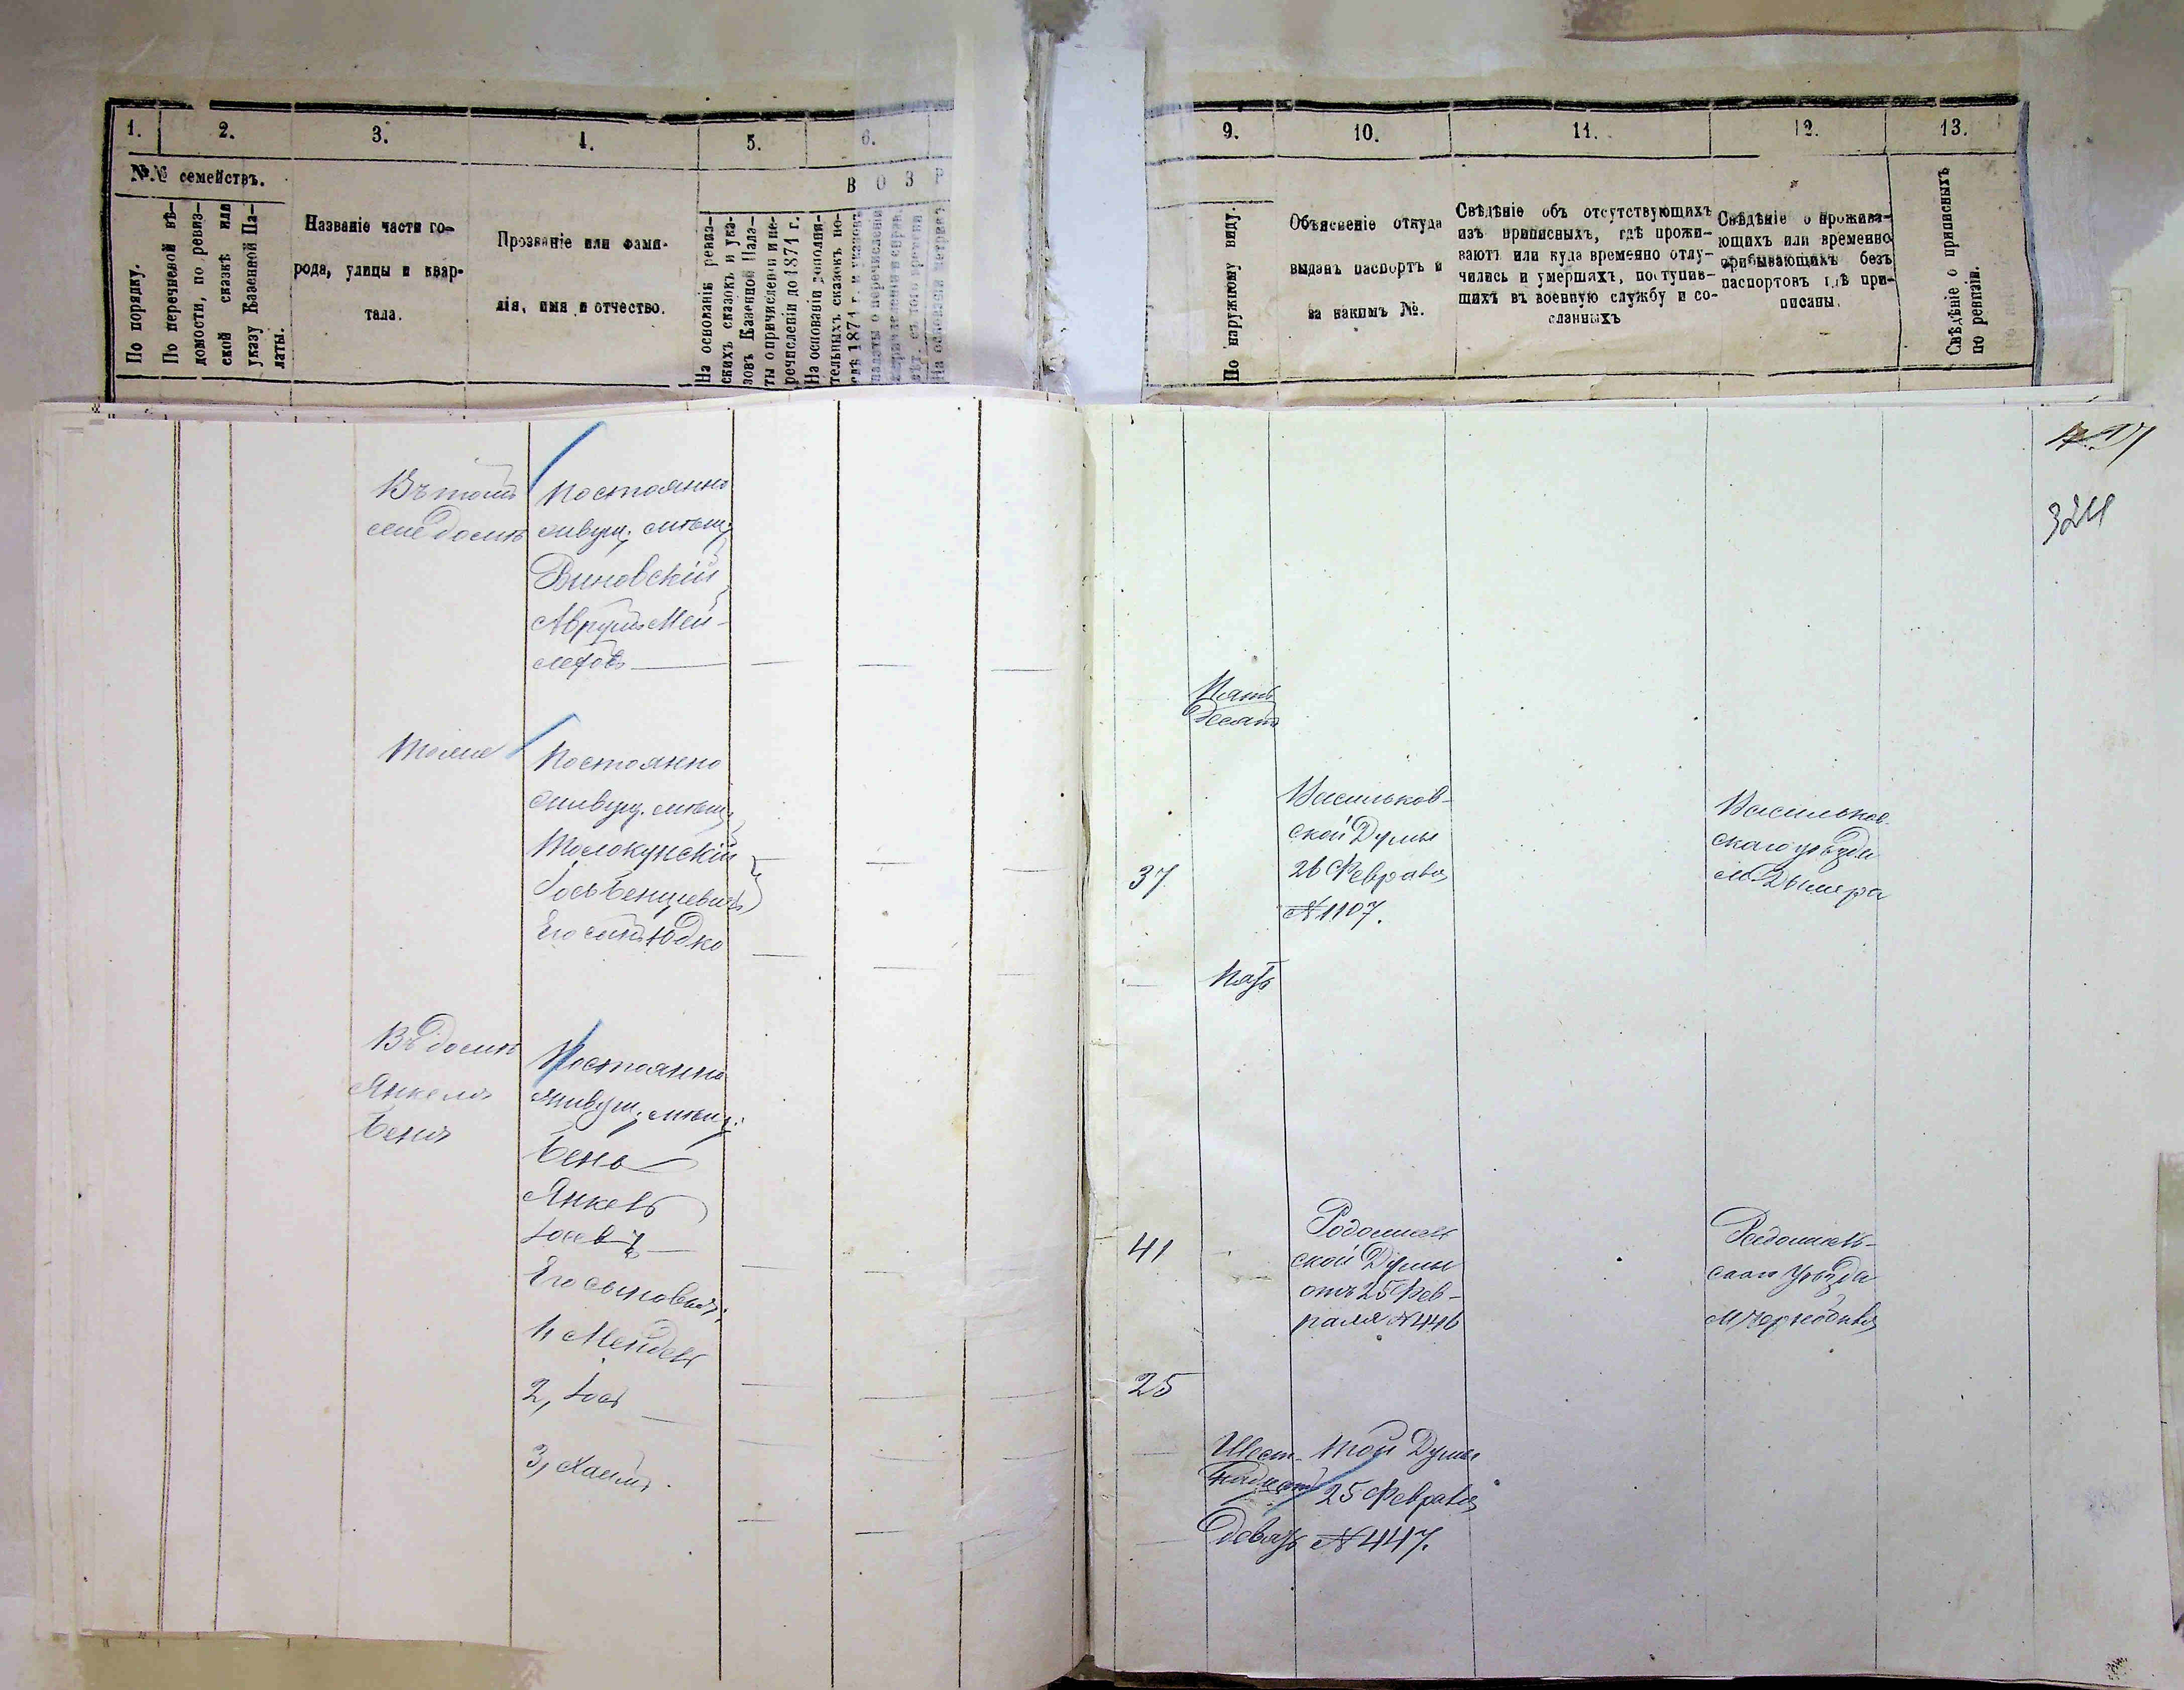 1.
2.
3.
4.
5.
6.
№№ семействъ.
В О З Р
По порядку.
По перечневой вѣ-
домости, по ревиз-
ской сказкѣ или
указу Казенной Па-
латы.
Названіе части го-
рода, улицы и квар-
тала.
Прозваніе или фами-
лія, имя и отчество.
На основаніи ревиз-
скихъ сказокъ и ука-
зовъ Казенной Пала-
ты о причисленіи и пе-
речисленіи до 1871 г.
На основаніи дополни-
тельныхъ сказокъ по-
слѣ 1871 г. и указовъ
палаты о перечисленіи
9.
10.
11.
12.
13.
По наружному виду.
Объясненіе откуда
выданъ паспортъ и
за какимъ №.
Свѣдѣніе объ отсутствующихъ
изъ приписныхъ, гдѣ прожи-
ваютъ или куда временно отлу-
чились и умершихъ, поступив-
шихъ въ военную службу и со-
сланныхъ
Свѣдѣніе о прожива-
ющихъ или временно
пребывающихъ безъ
паспортовъ гдѣ при-
писаны.
Свѣдѣніе о приписныхъ
по ревизіи.
Въ томъ
же домѣ
Постоянно
живущ. мѣщ.
Виновскій
Аврумъ Мей-
леховъ
Тоже
Постоянно
живущ. мѣщ.
Толокунскій
Іось Бенціевичъ
Его сынъ Юдко
Въ домѣ
Янкеля
Беня
Постоянно
живущ. мѣщ.
Бень
Янкель
Іосев.
Его сыновья:
1, Мендель
2, Іось
3, Хаимъ
17
324
Пять
десятъ
37
Васильков-
ской Думы
26 Февраля
№ 1107.
Васильков-
скаго уѣзда
м. Дымера
Пять
41
Радомысль
ской Думы
отъ 25 Фев-
раля № 446
Радомысль-
скаго Уѣзда
м. Чернобыля
25
Шест-
надцать
Той Думы
25 Февраля
Девять № 447.